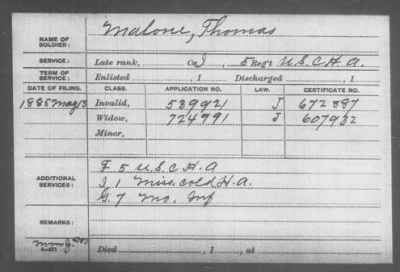 Malone, Thomas
NAME OF SOLDIER:
SERVICE: Late rank, Co. J, 5 Reg't U.S.C.H.A.
TERM OF SERVICE: Enlisted , 1 Discharged , 1
DATE OF FILING. CLASS. APPLICATION NO. LAW. CERTIFICATE NO.
1886 May 13 Invalid, 589921 J 672897
Widow, 724791 J 607932
Minor,
ADDITIONAL SERVICES:
F 5 U.S.C.H.A
I 1 Miss. cold. H.A.
G. 7 Mo. Inf
REMARKS:
Died , 1 , at